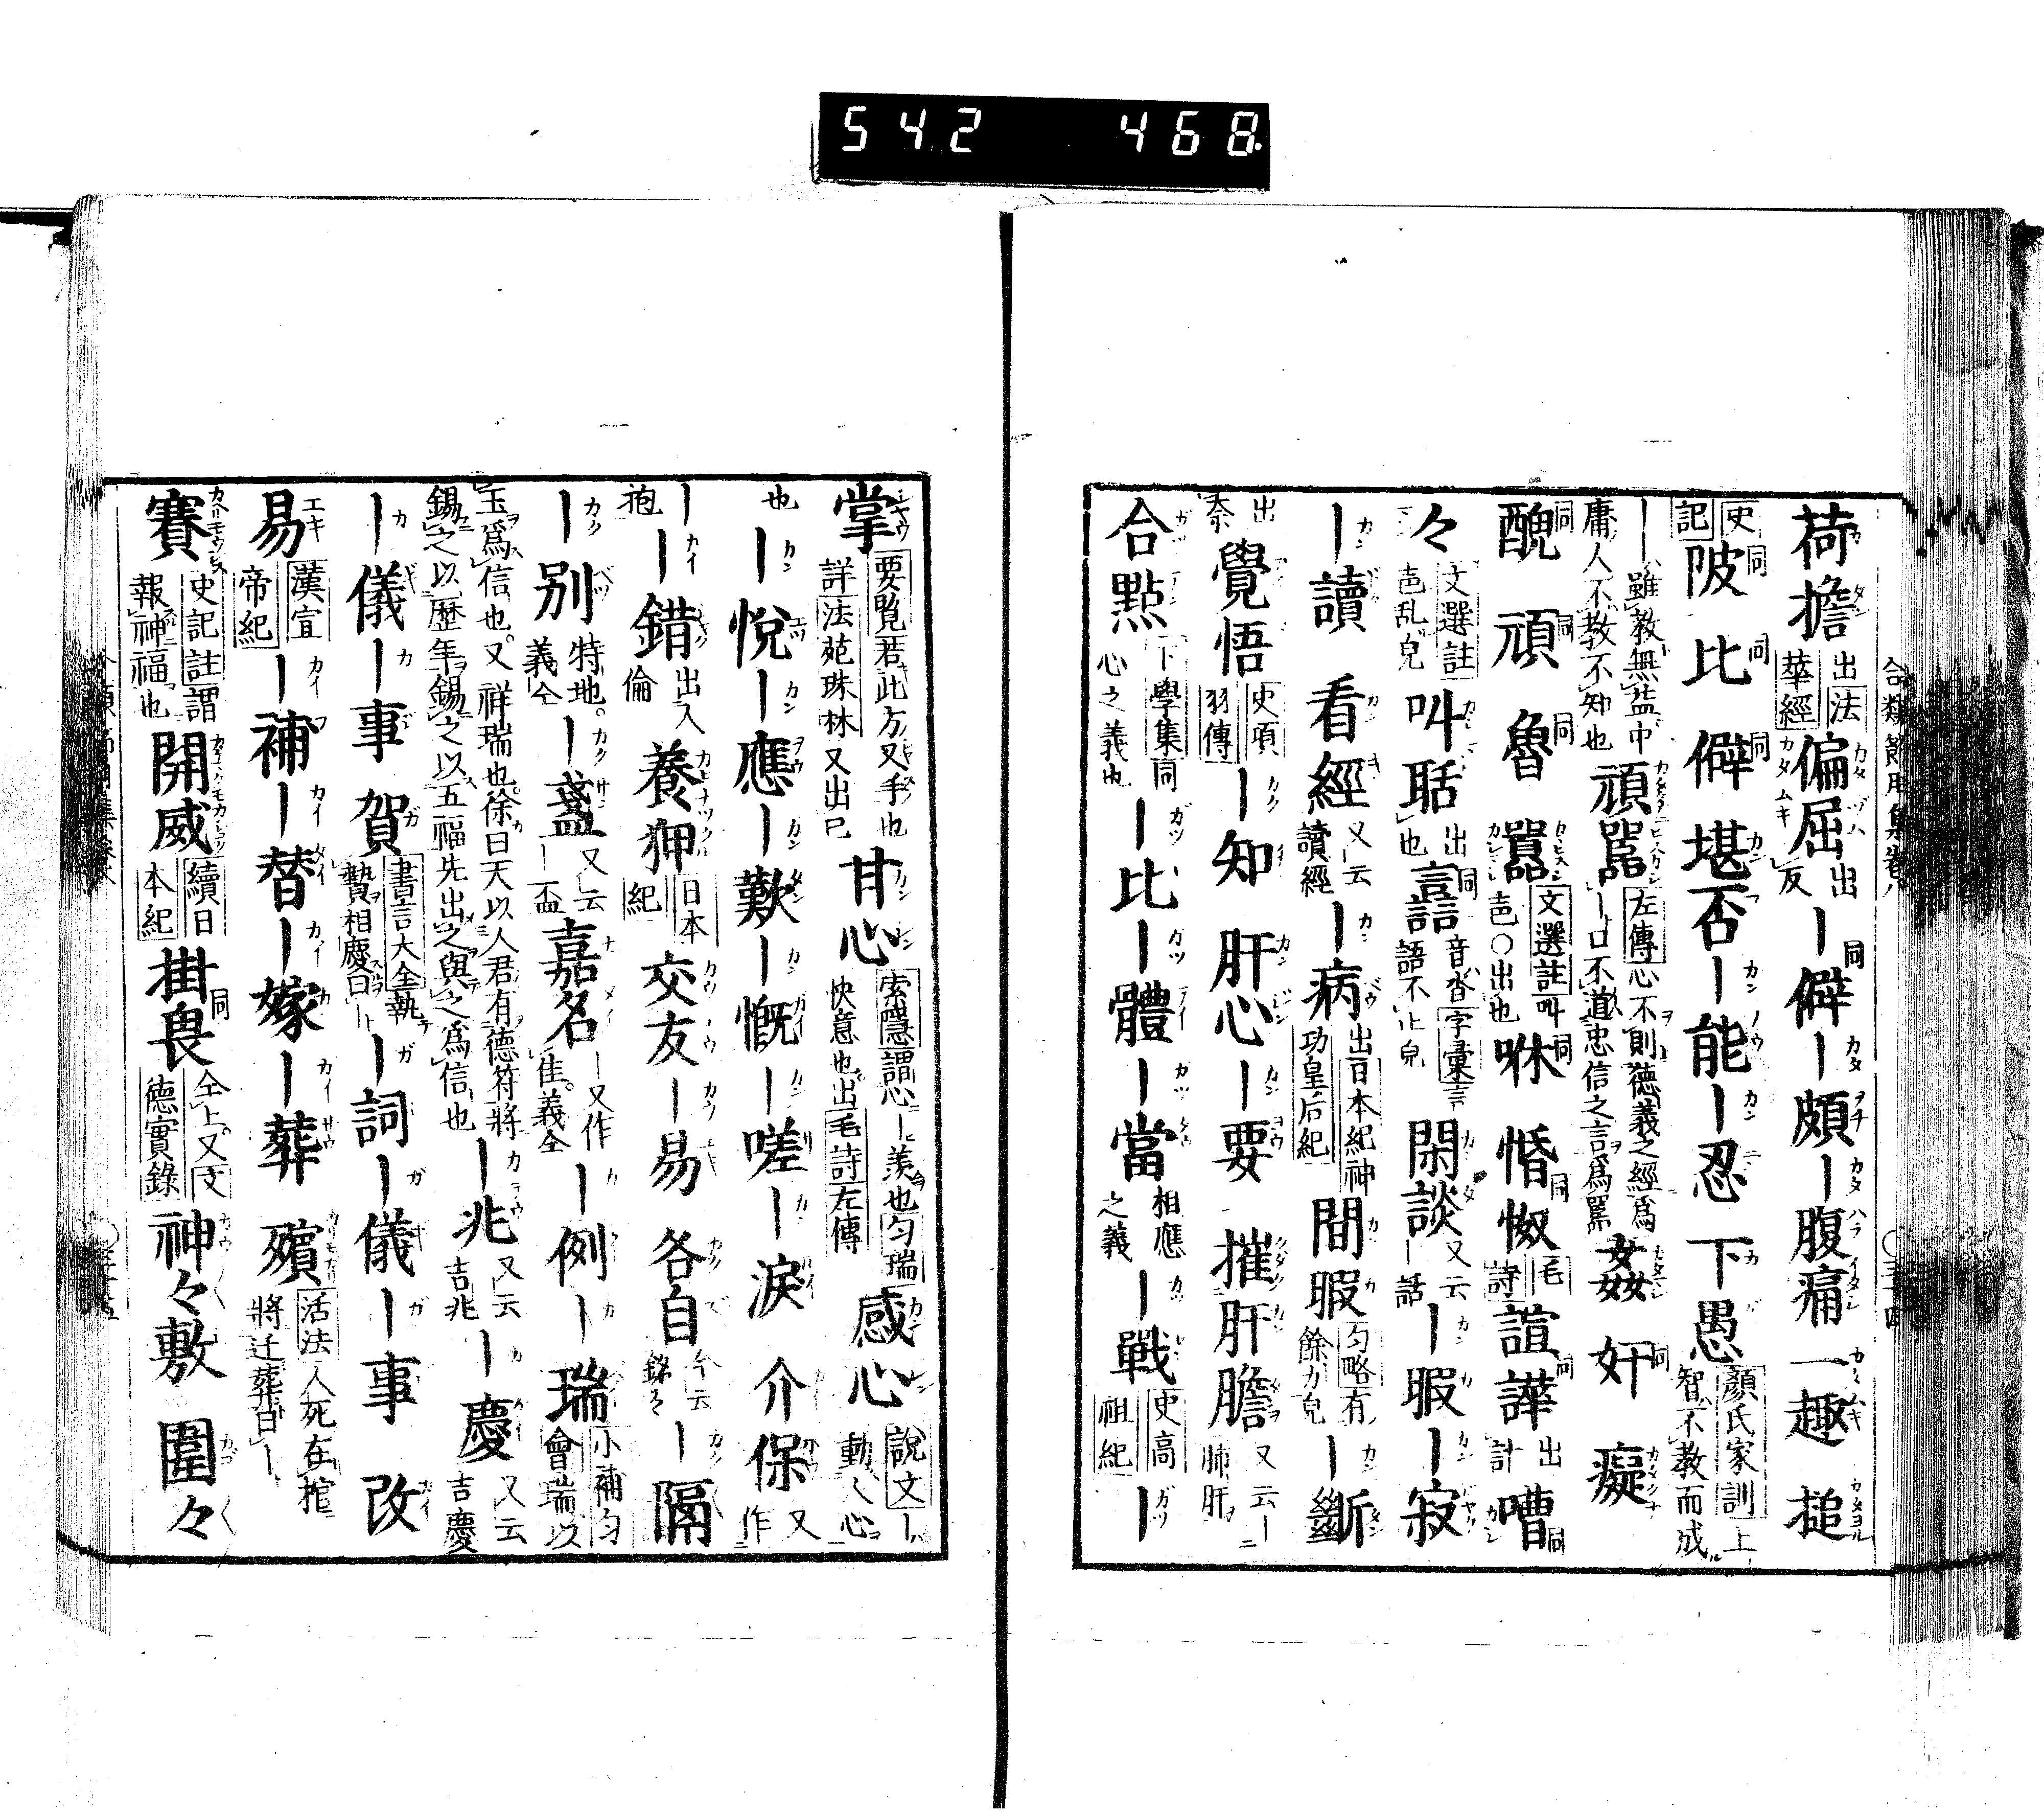 542 468
合類節用集卷八
荷擔 出法華經 偏屈 出出 ―僻 ―頗 ―腹痛 一趣 搥
史記 陂 比 僻 堪否 ―能 ―忍 下愚 顏氏家訓上智不教而成
―ハ雖教無益中庸人不教不知也 頑嚚 左傳心不則德義之經爲―口不道忠信之言爲嚚 姦 奸 癡
醜 頑 魯 嚚 文選註叫 咻 惛怓 毛詩 諠譁 出計 嘈
々 文選註 叫聒 出也 譶 音沓字彙言語不止皃 閑談 又云―話 ―暇 ―寂
―讀 看經 又云讀經 ―病 出日本紀神功皇后紀 間暇 匀略有餘力皃 ―斷
出奈 覺悟 史項羽傳 ―知 肝心 ―要 摧肝膽 又云―肺肝
合點 下學集同心之義也 ―比 ―體 ―當 相應之義 ―戰 史高祖紀 ―
掌 要覧若此方叉手也詳法苑珠林又出巳 甘心 索隱謂心―羨也匀瑞快意也出毛詩左傳 感心 說文―動人心
也 ―悅 ―應 ―歎 ―慨 ―嗟 ―淚 介保 又作
―抱 ―錯 出人倫 養狎 日本紀 交友 ―易 各自 今云銘々 ―隔
―別 特地義仝 ―盞 又云―盃 嘉名 ―又作佳義仝 ―例 ―瑞 小補匀會瑞以
玉爲信也又祥瑞也徐曰天以人君有德符將錫之以歷年錫之以五福先出之與之爲信也 ―兆 又云吉兆 ―慶 又云吉慶
―儀 ―事 賀 書言大全執贄相慶曰― ―詞 ―儀 ―事 改
易 漢宣帝紀 ―補 ―替 ―嫁 ―葬 殯 活法人死在棺將迁葬曰―
賽 史記註謂報神福也 開威 續日本紀 掛畏 仝上又文德實錄 神々敷 圍々